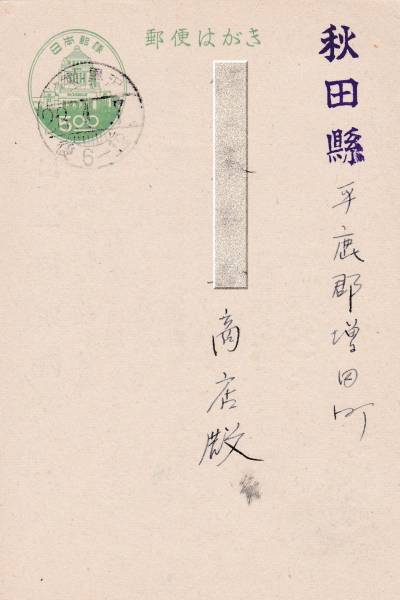 秋田縣平鹿郡増田町
商店殿
郵便はがき
日本郵便
500
后6-12